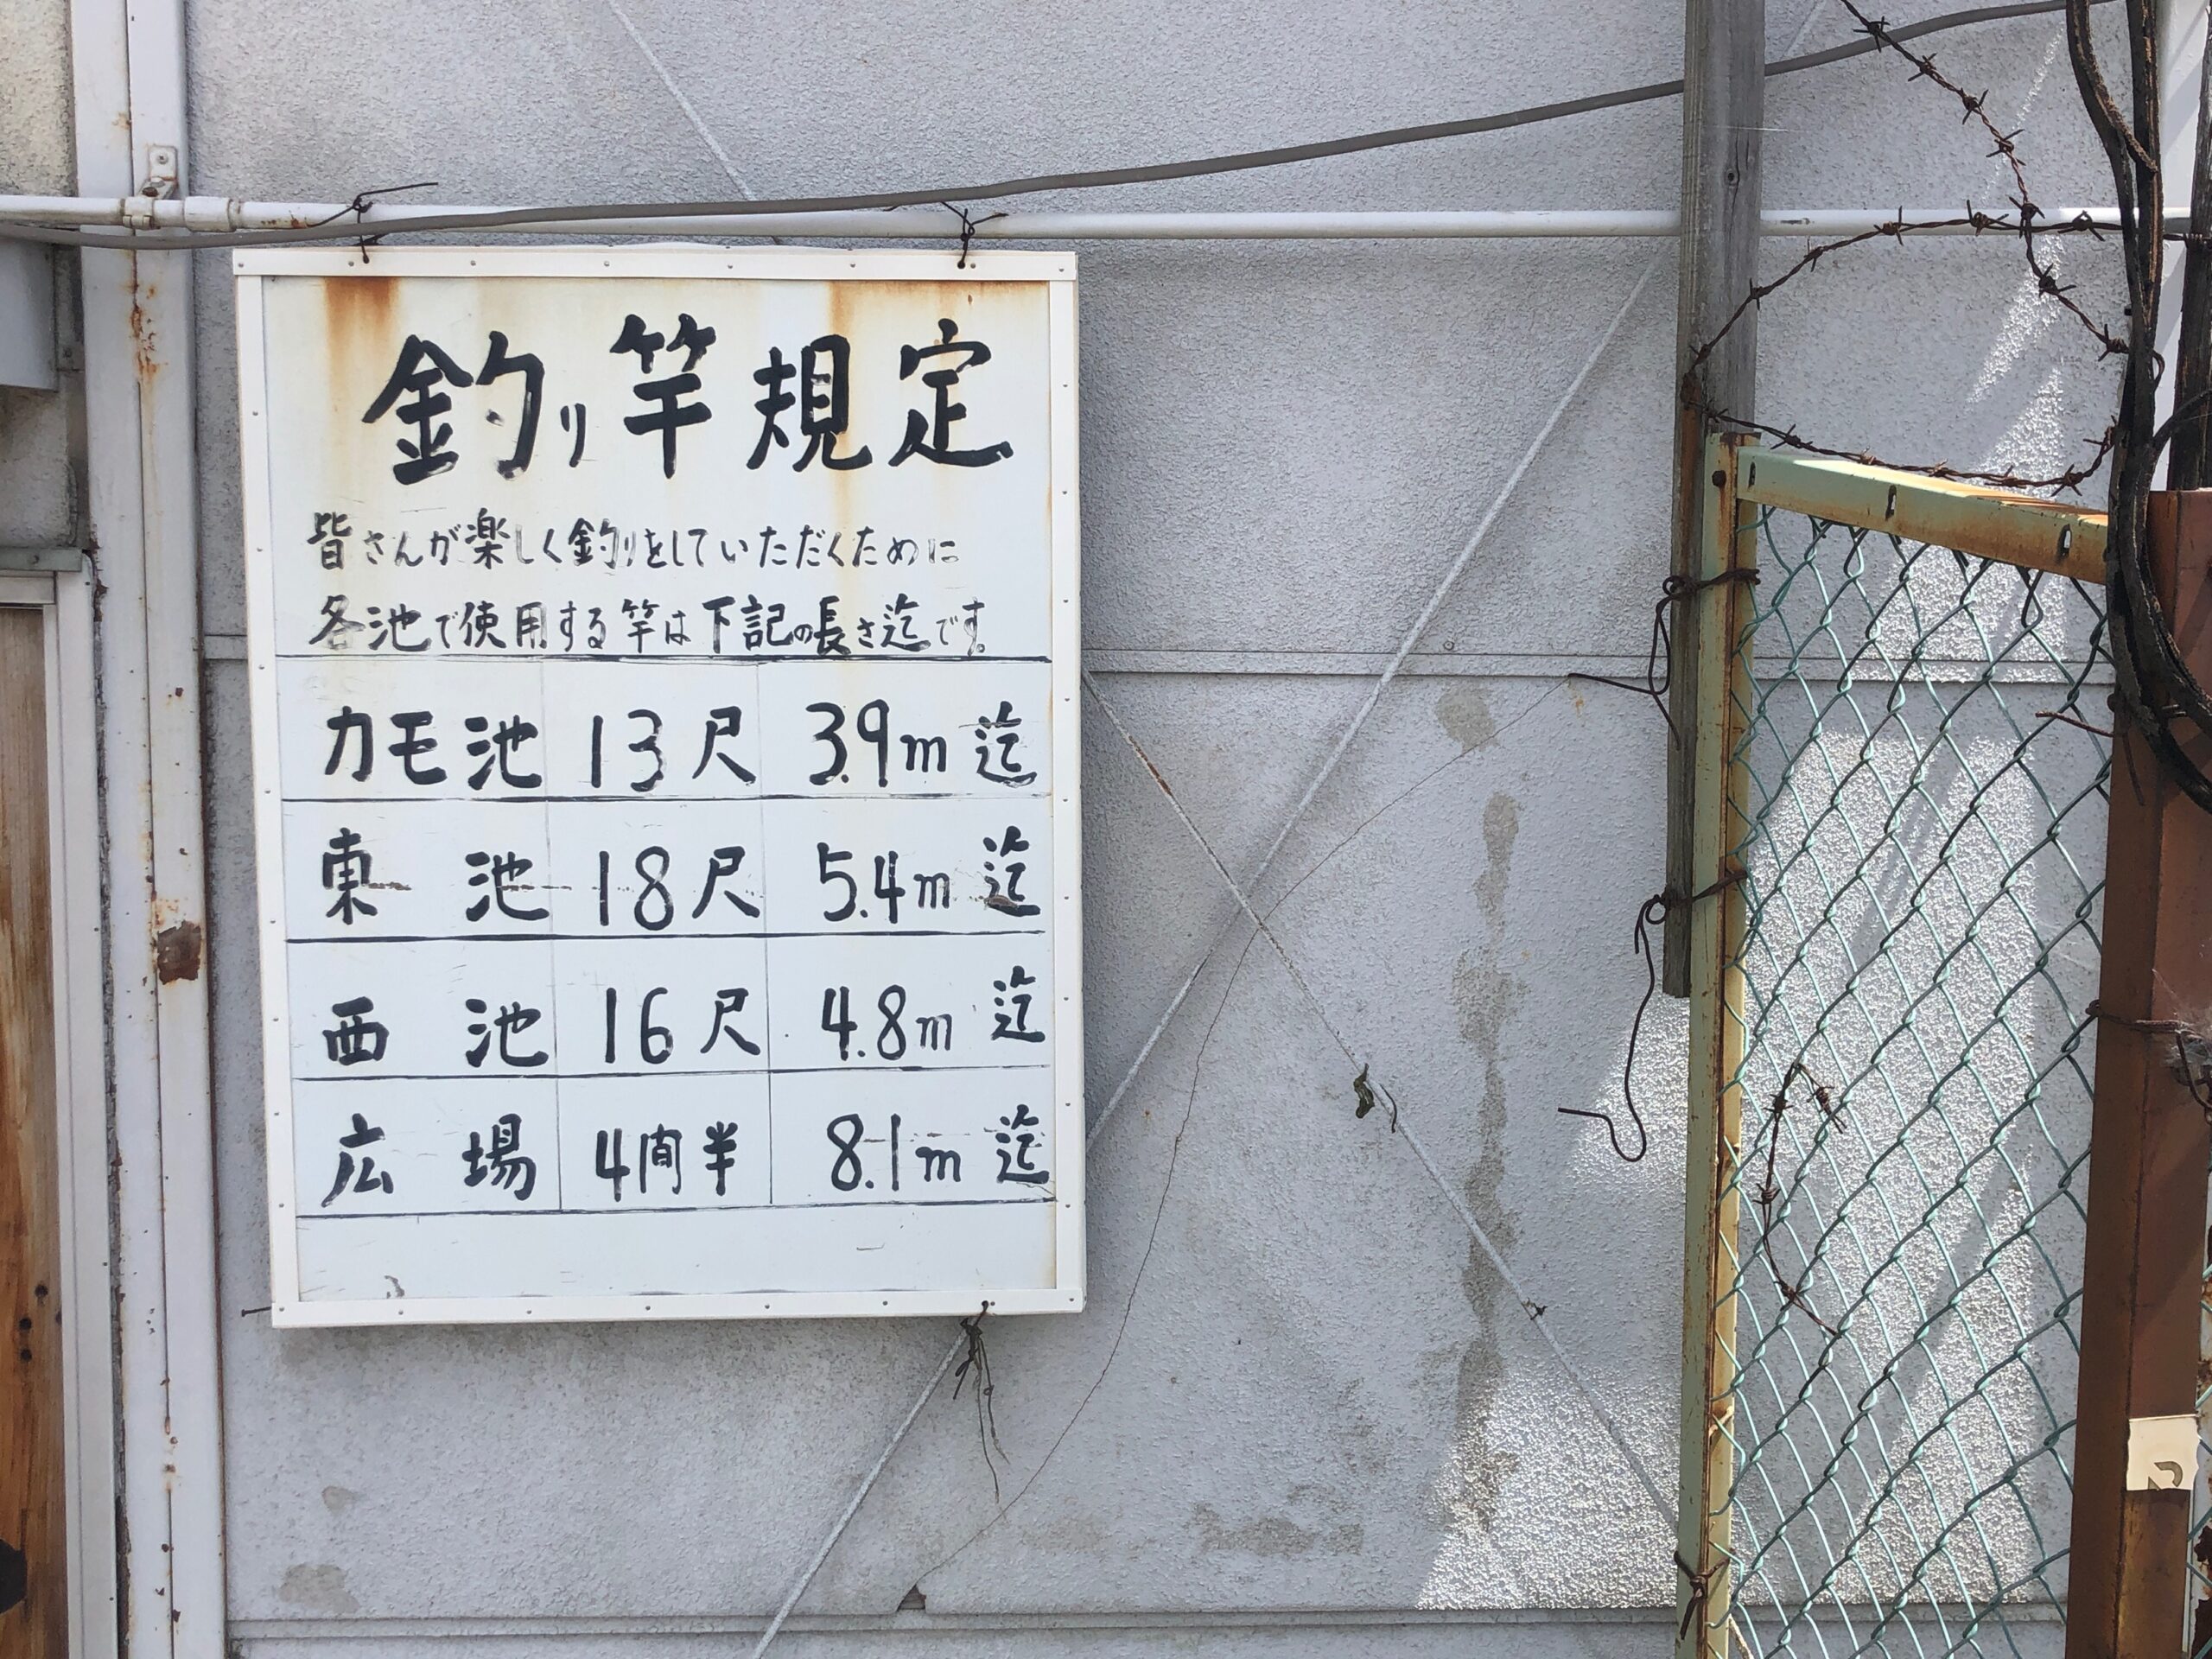 釣り竿規定
皆さんが楽しく釣りをしていただくために
各池で使用する竿は下記の長さ迄です。
カモ池 13尺 3.9m迄
東池 18尺 5.4m迄
西池 16尺 4.8m迄
広場 4間半 8.1m迄